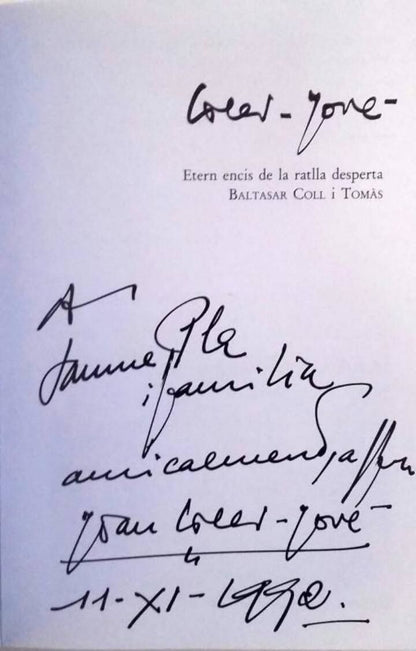 Coler-Jové-
Etern encís de la ratlla desperta
BALTASAR COLL i TOMÀS
A
Jaume Pla
i familia
amicalment,
Joan Coler-Jové
11-XI-1992.